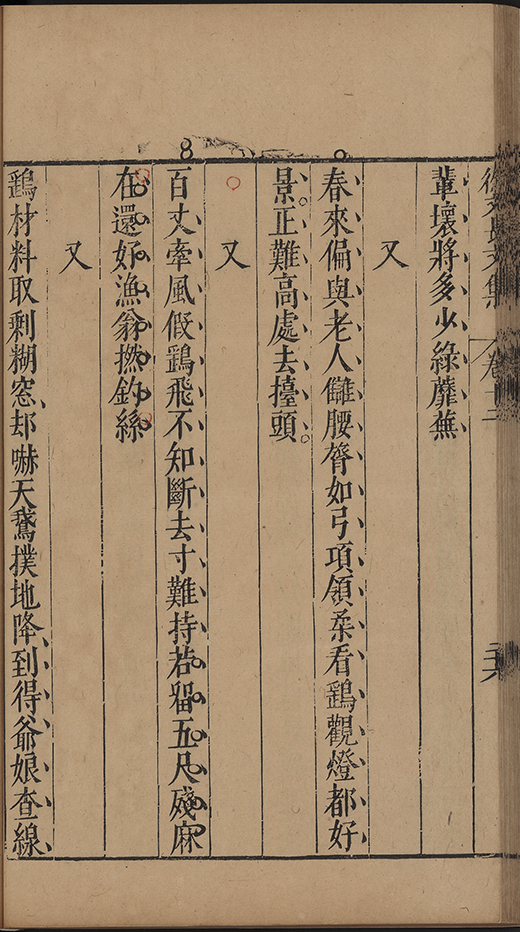 徐文長文集 卷十二
輩壞將多少綠蘼蕪
又
春來偏與老人讎腰膂如弓項領柔看鷂觀燈都好
景正難高處去擡頭
又
百𠀋牽風假鷂飛不知斷去寸難持若留五尺殘麻
在還好漁翁撚釣絲
又
鷂材料取剩糊窓却嚇天鵞撲地降到得爺娘查線